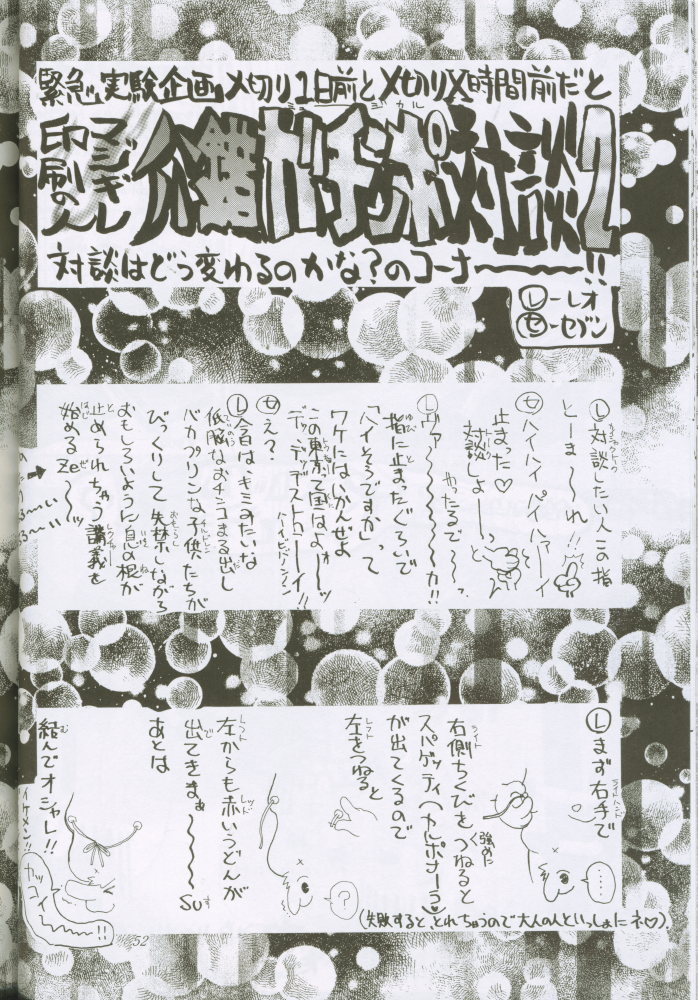 緊急実験企画〆切り1日前と〆切りX時間前だと
マジギレ
印刷の人
介錯ガチンポ対談2
対談はどう変わるのかな?のコーナ〜〜〜!!
Ⓛーレオ
セーセブン
Ⓛ対談したい人この指
とーま〜〜れ!!
セハイハイパイハァーイ
止まった♡
対談しよーーっ
やったるで〜〜っ
Ⓛヴァ〜〜〜〜〜カ!!
指に止まったぐらいで
「ハイそうですか」って
ワケにはいかんぜよ
この東京って国はよぉ〜〜ッ
デッ、デッ、デストローーイ!!
セえ?
Ⓛ今日はキミみたいな
低脳なおチンコまる出し
バカプリンな子供たちが
びっくりして失禁しながら
おもしろいように息の根が
止められちゃう講義を
始めるZe〜〜〜ッ
Ⓛまず右手で
右側ちくびを強めにつねると
スパゲッティ(カルボナーラ♡)
が出てくるので
左をつねると
左からも赤いうどんが
出てきまぁ〜〜〜〜su
あとは
結んでオシャレ!!
イケメン!!
カッコイ〜〜〜!!
?
(失敗すると、とれちゃうので大人の人といっしょにネ♡).
52